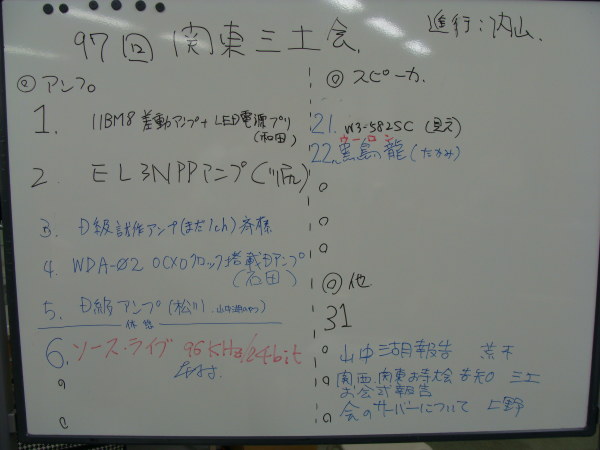 97回 関東三土会.
進行:内山.
◎ アンプ
1. 11BM8 差動アンプ+LED電源プリ
(和田)
2. EL3NPPアンプ(堀)
3. D級試作アンプ(まだ1ch) 斉藤
4. WDA-02 OCXOクロック搭載Dアンプ
(石田)
5. D級アンプ(松川
休憩
6. ソース・ライブ 96KHz/24bit
◎ スピーカ.
21. W3-582SC (見え)
ウーロン
22. 黒烏龍(たかみ)
◎ 他
31
山中湖報告 荒木
関西、関東お寺大会 告知 三土
お公式報告
会のサーバーについて 上野